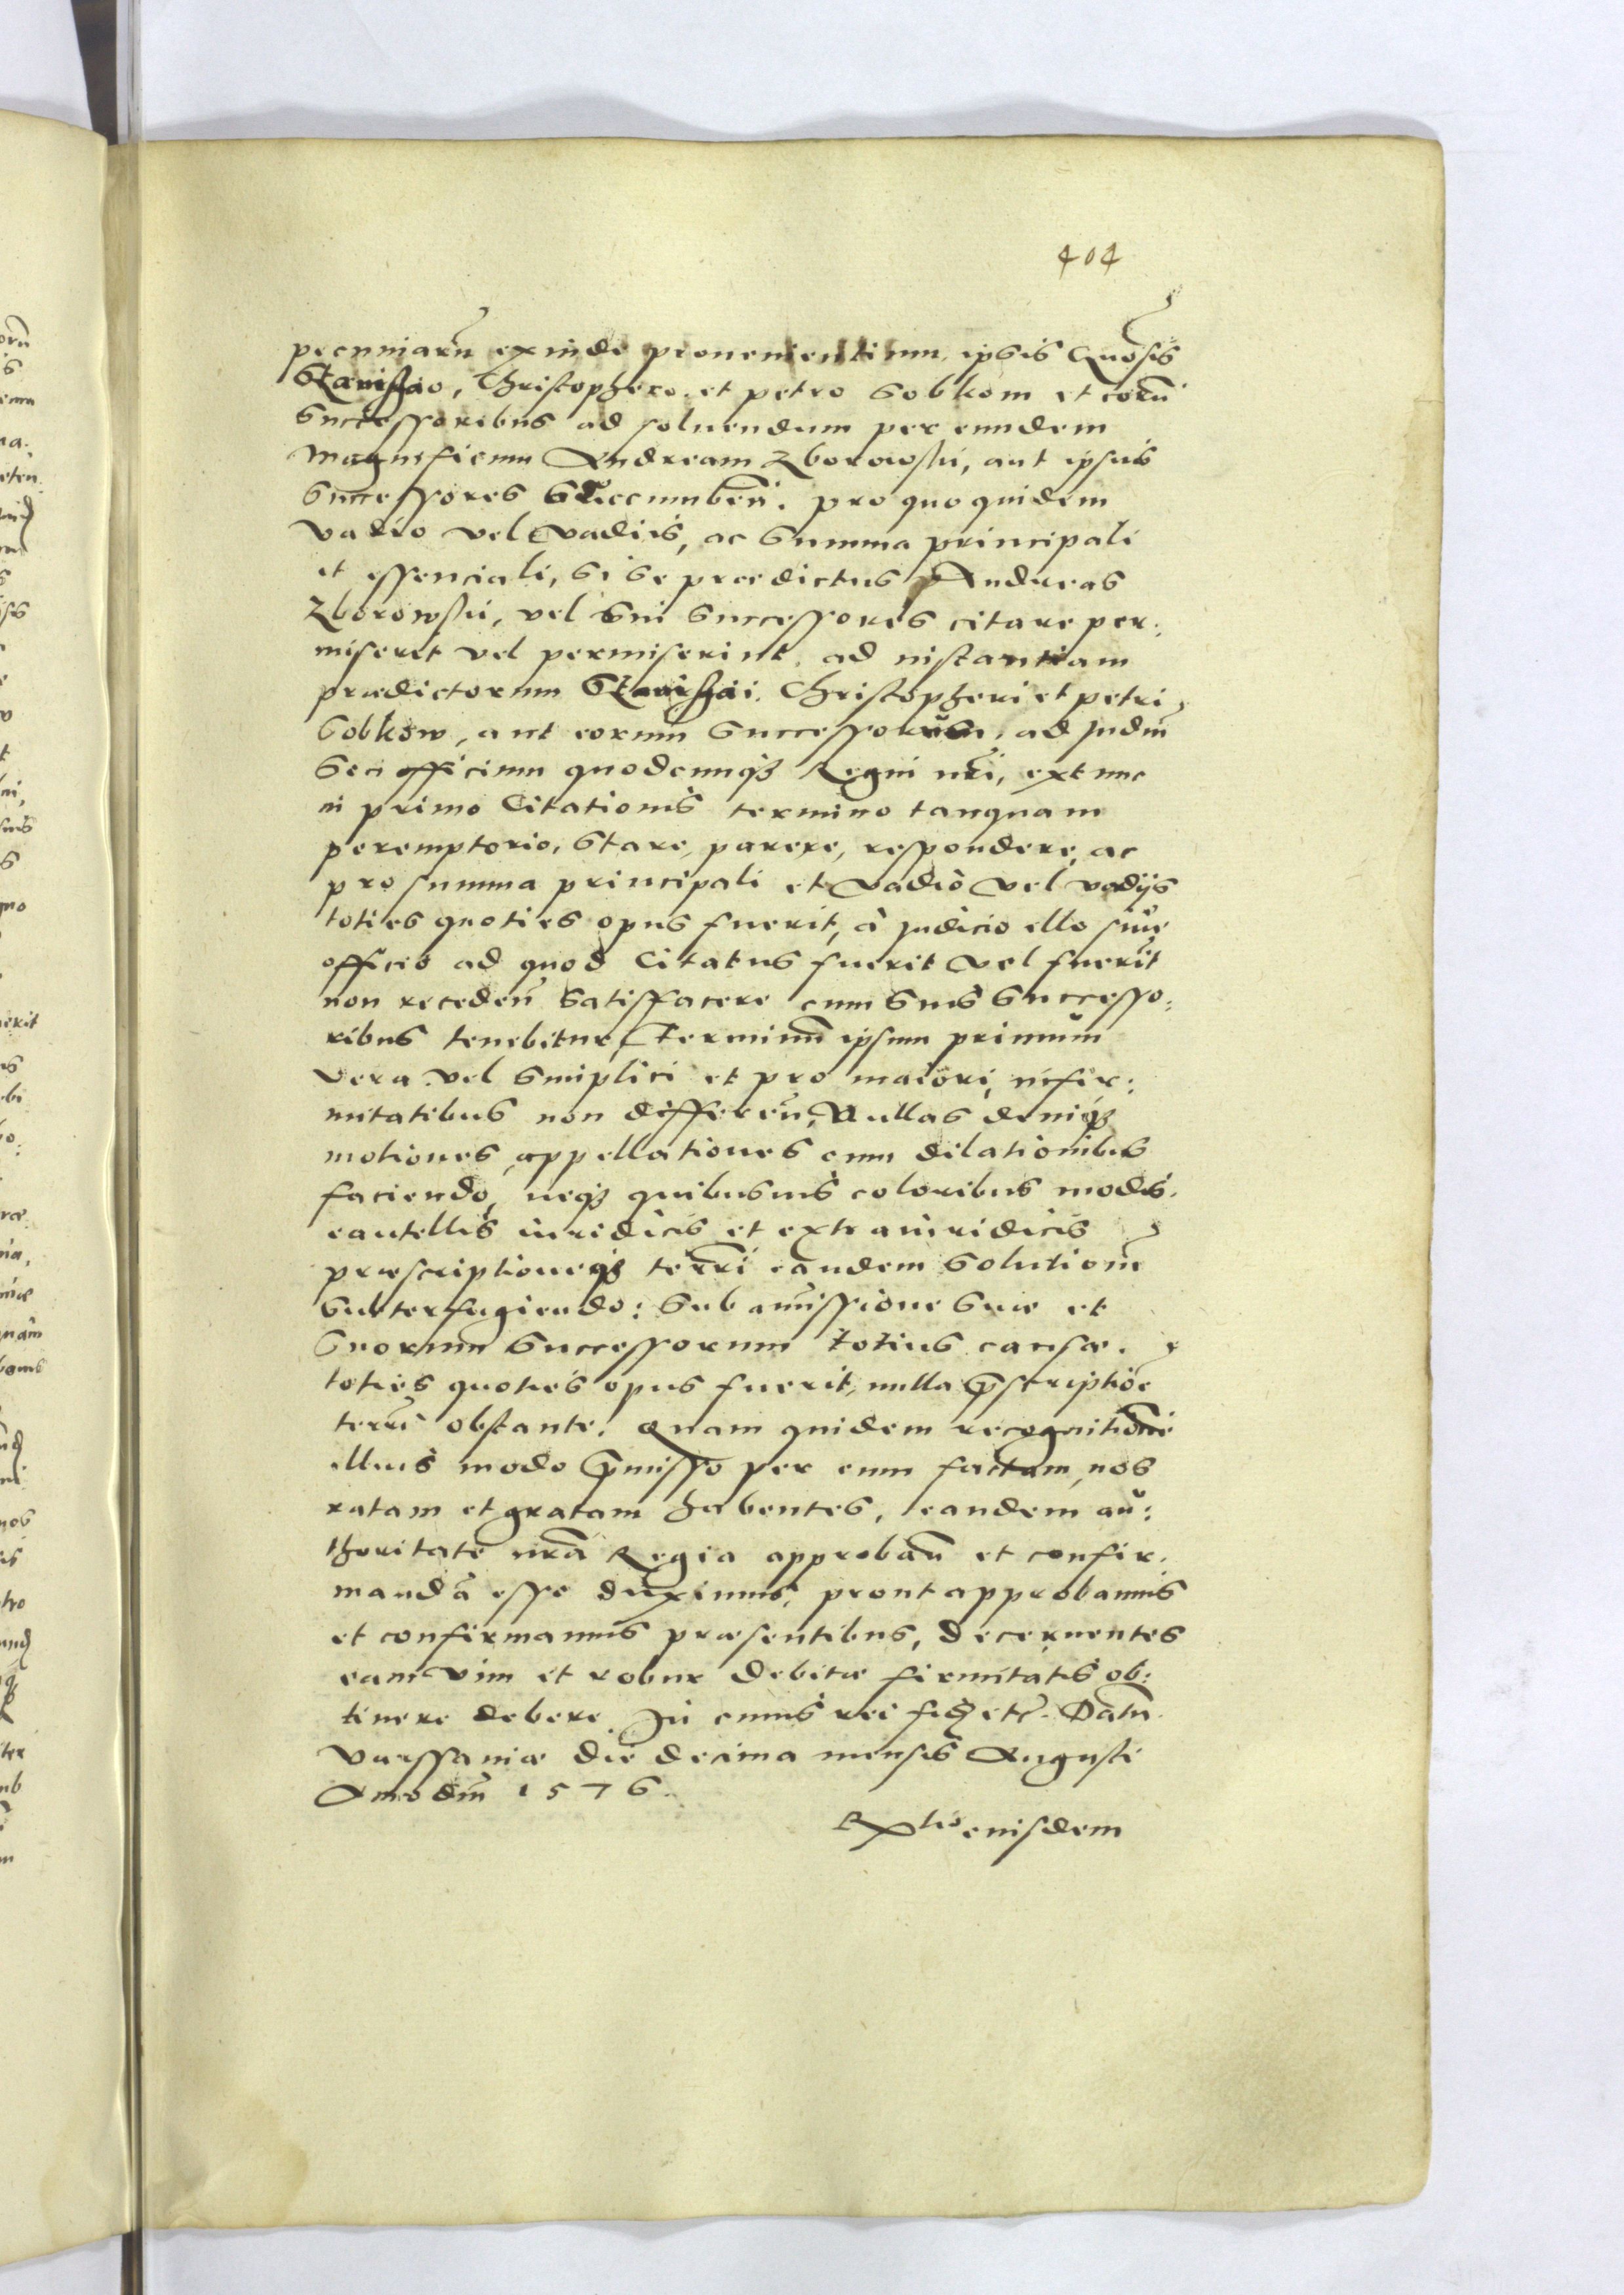 404
pecuniaru exinde prouenientium ipsis Gnosis
Stanislao, Christophero et petro Sobkom et eoru
Successoribus ad soluendum per eundem
Magnificum Andream Zborowski, aut ipsius
Successores Succumben. pro quo quidem
vadio vel vadiis, ac Summa principali
et essenciali, Si Se praedictus Andreas
Zborowski, vel Sui Successores citare per:
miserit vel permiserint, ad instantiam
praedictorum Stanislai Christopheri et petri
Sobkow, aut eorum Successorum, ad Judm
Seu officium quodcunqz Regni nri, extunc
in primo Citationis termino tanquam
peremptorio, Stare, parere, respondere, ac
pro summa principali et vadio vel vadijs
toties quoties opus fuerit, à judicio illo siue
officio ad quod Citatus fuerit vel fuerit
non receden Satisffacere cum Suis Successo:
ribus tenebitur, Terminu ipsum primum
vera vel Simplici et pro maiori, infir:
mitatibus non differen, Nullas deniqz
motiones, appellationes cum dilationibus
faciendo, neqz quibusuis coloribus modis.
cautellis iuridicis et extraiuridicis
praescriptioneqz terrri eandem Solutiom
Subterfugiendo: Sub amissione Suae et
Suorum Successorum totius causae.
toties quoties opus fuerit, nulla pscriptioe
terrri obstante. Quam quidem recognitione
illius modo pmisso per eum factam, nos
ratam et gratam habentes, eandem au:
thoritate nra Regia approban et confir.
manda esse duximus, prout approbamus
et confirmamus praesentibus, decernentes
eam vim et robur debitae firmitatis ob:
tinere debere. In cuius rei fidz etc. Datu
Varssauiae die decima mensis Augusti
Anno dni 1576.
Rtio eiusdem